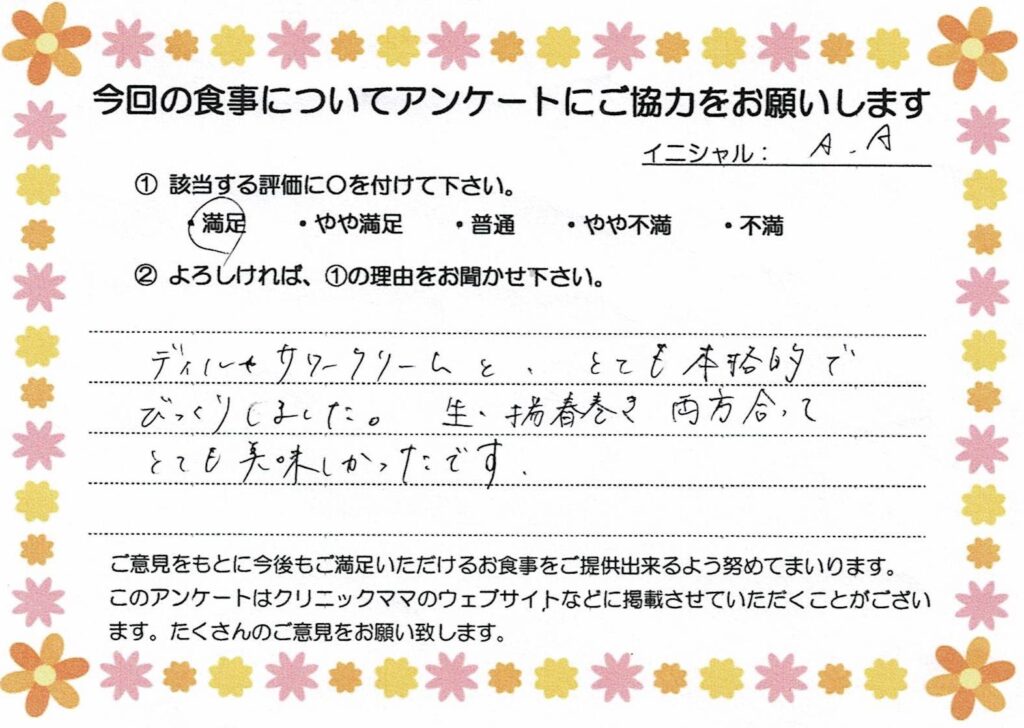 今回の食事についてアンケートにご協力をお願いします
イニシャル： A.A
① 該当する評価に〇を付けて下さい。
・満足 ・やや満足 ・普通 ・やや不満 ・不満
② よろしければ、①の理由をお聞かせ下さい。
ディルやサワークリームと、とても本格的で
びっくりしました。 生・揚春巻き 両方合って
とても美味しかったです.
ご意見をもとに今後もご満足いただけるお食事をご提供出来るよう努めてまいります。
このアンケートはクリニックママのウェブサイトなどに掲載させていただくことがござい
ます。たくさんのご意見をお願い致します。